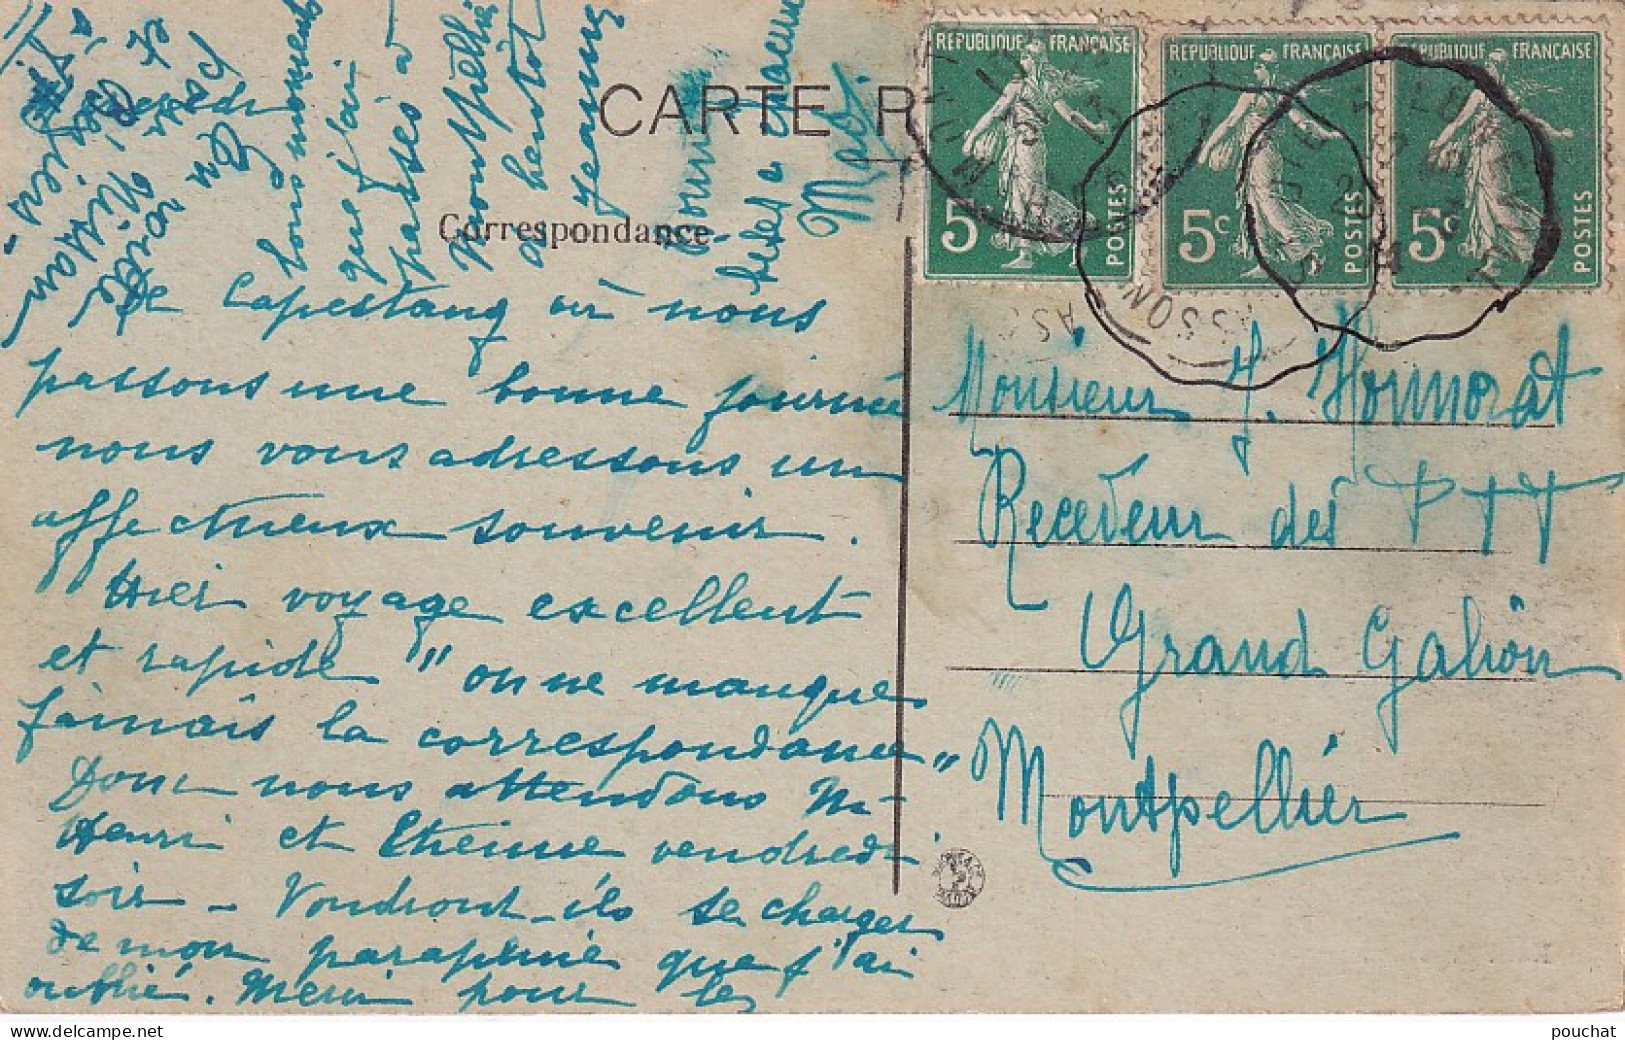 CARTE P
Correspondance
RÉPUBLIQUE FRANÇAISE
5c
POSTES
RÉPUBLIQUE FRANÇAISE
5c
POSTES
RÉPUBLIQUE FRANÇAISE
5c
POSTES
de Capestang où nous
passons une bonne journée
nous vous adressons un
affectueux souvenir.
Hier voyage excellent
et rapide "on ne manque
jamais la correspondance"
Donc nous attendons M.
Henri et Etienne vendredi
soir - Voudront-ils se charger
de mon parapluie que j'ai
oublié. Merci pour les
bons moments
que j'ai
passés à
Montpellier
à bientôt
Jeanny
Monsieur J. Honnorat
Receveur des PTT
Grand Galion
Montpellier
pouchat